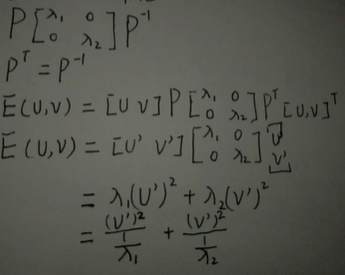 P [λ₁ 0 0 λ₂] P⁻¹
Pᵀ = P⁻¹
E(U,V) = [U V] P [λ₁ 0 0 λ₂] Pᵀ [U,V]ᵀ
E(U,V) = [U' V'] [λ₁ 0 0 λ₂] [U' V']
= λ₁(U')² + λ₂(V')²
= (U')²/(1/λ₁) + (V')²/(1/λ₂)